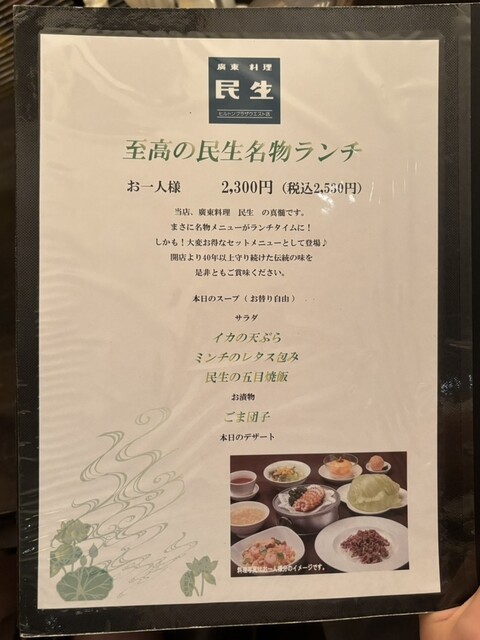 廣東料理
民生
ヒルトンプラザウエスト店
至高の民生名物ランチ
お一人様 2,300円（税込2,530円）
当店、廣東料理 民生 の真髄です。
まさに名物メニューがランチタイムに！
しかも！大変お得なセットメニューとして登場♪
開店より40年以上守り続けた伝統の味を
是非ともご賞味ください。
本日のスープ（お替り自由）
サラダ
イカの天ぷら
ミンチのレタス包み
民生の五目焼飯
お漬物
ごま団子
本日のデザート
料理写真はお一人様分のイメージです。